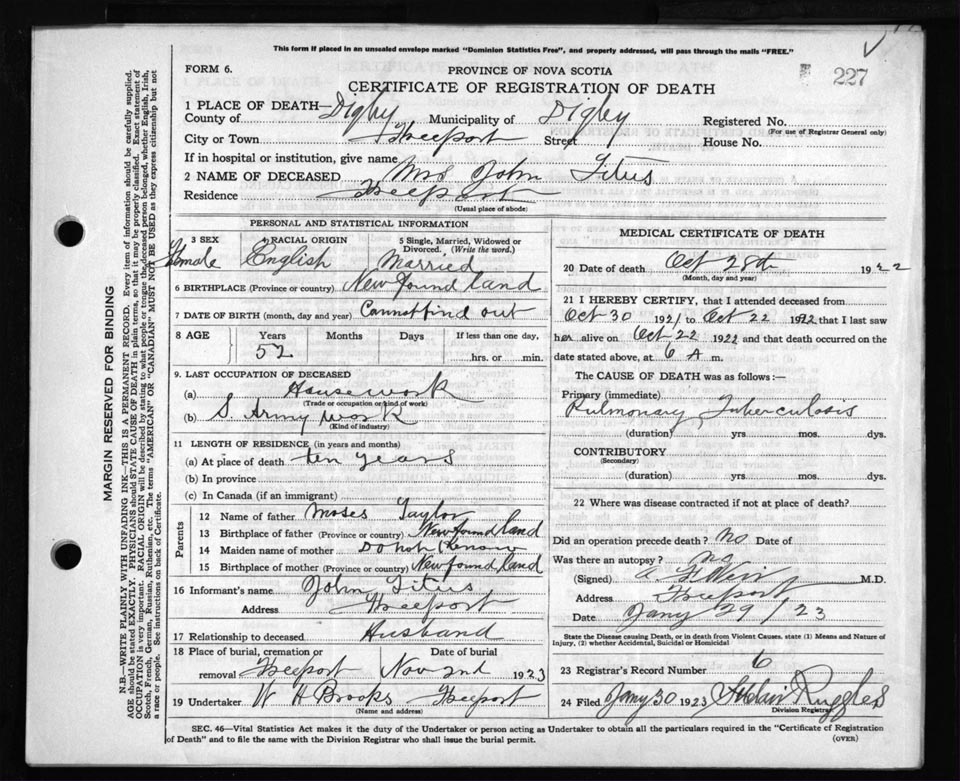 This form if placed in an unsealed envelope marked "Dominion Statistics Free", and properly addressed, will pass through the mails "FREE."
FORM 6.
PROVINCE OF NOVA SCOTIA
227
CERTIFICATE OF REGISTRATION OF DEATH
1 PLACE OF DEATH—
County of Digby Municipality of Digby Registered No.
(For use of Registrar General only)
City or Town Freeport Street House No.
If in hospital or institution, give name
2 NAME OF DECEASED Mrs John Titus
Residence Freeport
(Usual place of abode)
PERSONAL AND STATISTICAL INFORMATION
3 SEX 4 RACIAL ORIGIN 5 Single, Married, Widowed or Divorced. (Write the word.)
Female English Married
6 BIRTHPLACE (Province or country) Newfoundland
7 DATE OF BIRTH (month, day and year) Cannot find out
8 AGE Years Months Days If less than one day,
52 hrs. or min.
9. LAST OCCUPATION OF DECEASED
(a) Housework
(Trade or occupation or kind of work)
(b) S. Army work
(Kind of industry)
11 LENGTH OF RESIDENCE (in years and months)
(a) At place of death ten years
(b) In province
(c) In Canada (if an immigrant)
Parents
12 Name of father Moses Taylor
13 Birthplace of father (Province or country) Newfoundland
14 Maiden name of mother Do not Know
15 Birthplace of mother (Province or country) Newfoundland
16 Informant's name John Titus
Address Freeport
17 Relationship to deceased Husband
18 Place of burial, cremation or
removal Freeport Nov 2nd 1923
19 Undertaker W H Brooks Freeport
(Name and address)
MEDICAL CERTIFICATE OF DEATH
20 Date of death Oct 28th 1922
(Month, day and year)
21 I HEREBY CERTIFY, that I attended deceased from
Oct 30 1921 to Oct 22 1922 that I last saw
her alive on Oct 22 1922 and that death occurred on the
date stated above, at 6 A m.
The CAUSE OF DEATH was as follows:—
Primary (immediate)
Pulmonary Tuberculosis
(duration) yrs mos. dys.
CONTRIBUTORY
(Secondary)
(duration) yrs. mos. dys.
22 Where was disease contracted if not at place of death?
Did an operation precede death? no Date of
Was there an autopsy? no
(Signed) Weir M.D.
Address Freeport
Date Jany 29 / 23
State the Disease causing Death, or in death from Violent Causes, state (1) Means and Nature of Injury, (2) whether Accidental, Suicidal or Homicidal
23 Registrar's Record Number 6
24 Filed Jany 30 1923 Ruggles
Division Registrar
SEC. 46—Vital Statistics Act makes it the duty of the Undertaker or person acting as Undertaker to obtain all the particulars required in the "Certificate of Registration
of Death" and to file the same with the Division Registrar who shall issue the burial permit.
(OVER)
MARGIN RESERVED FOR BINDING
N.B.—WRITE PLAINLY WITH UNFADING INK—THIS IS A PERMANENT RECORD. Every item of information should be carefully supplied.
AGE should be stated EXACTLY. PHYSICIANS should STATE CAUSE OF DEATH in plain terms, so that it may be properly classified. Exact statement of
OCCUPATION is very important. RACIAL ORIGIN will be described by stating to what people or tongue the deceased person belonged, whether English, Irish,
Scotch, French, German, Russian, Ruthenian, etc. The terms "AMERICAN" OR "CANADIAN" MUST NOT BE USED as they express citizenship but not
a race or people. See instructions on back of Certificate.